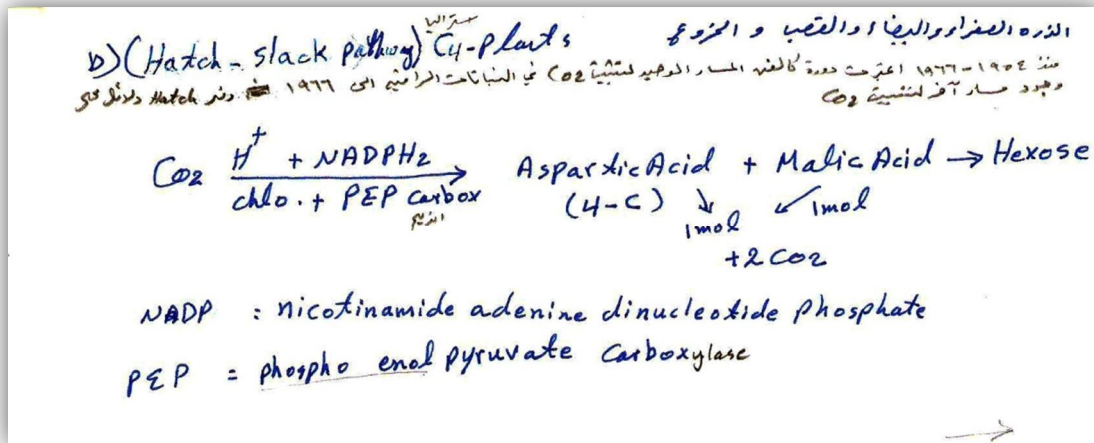 استراليا
b) (Hatch - slack pathway) C4-plants الذره الصفراء والبيضاء والقصب و الخروع
منذ ١٩٥٤-١٩٦٦ اعتبرت دورة كالفن المسار الوحيد لتثبيت CO2 في النباتات الراقية الى ١٩٦٦ Hatch دلائل على
وجود مسار آخر لتثبيت CO2
CO2 H+ + NADPH2 Aspartic Acid + Malic Acid → Hexose
chlo. + PEP carbox (4-C) ↓ ↙ 1mol
انزيم 1mol
+2 CO2
NADP : nicotinamide adenine dinucleotide phosphate
PEP = phospho enol pyruvate carboxylase
→